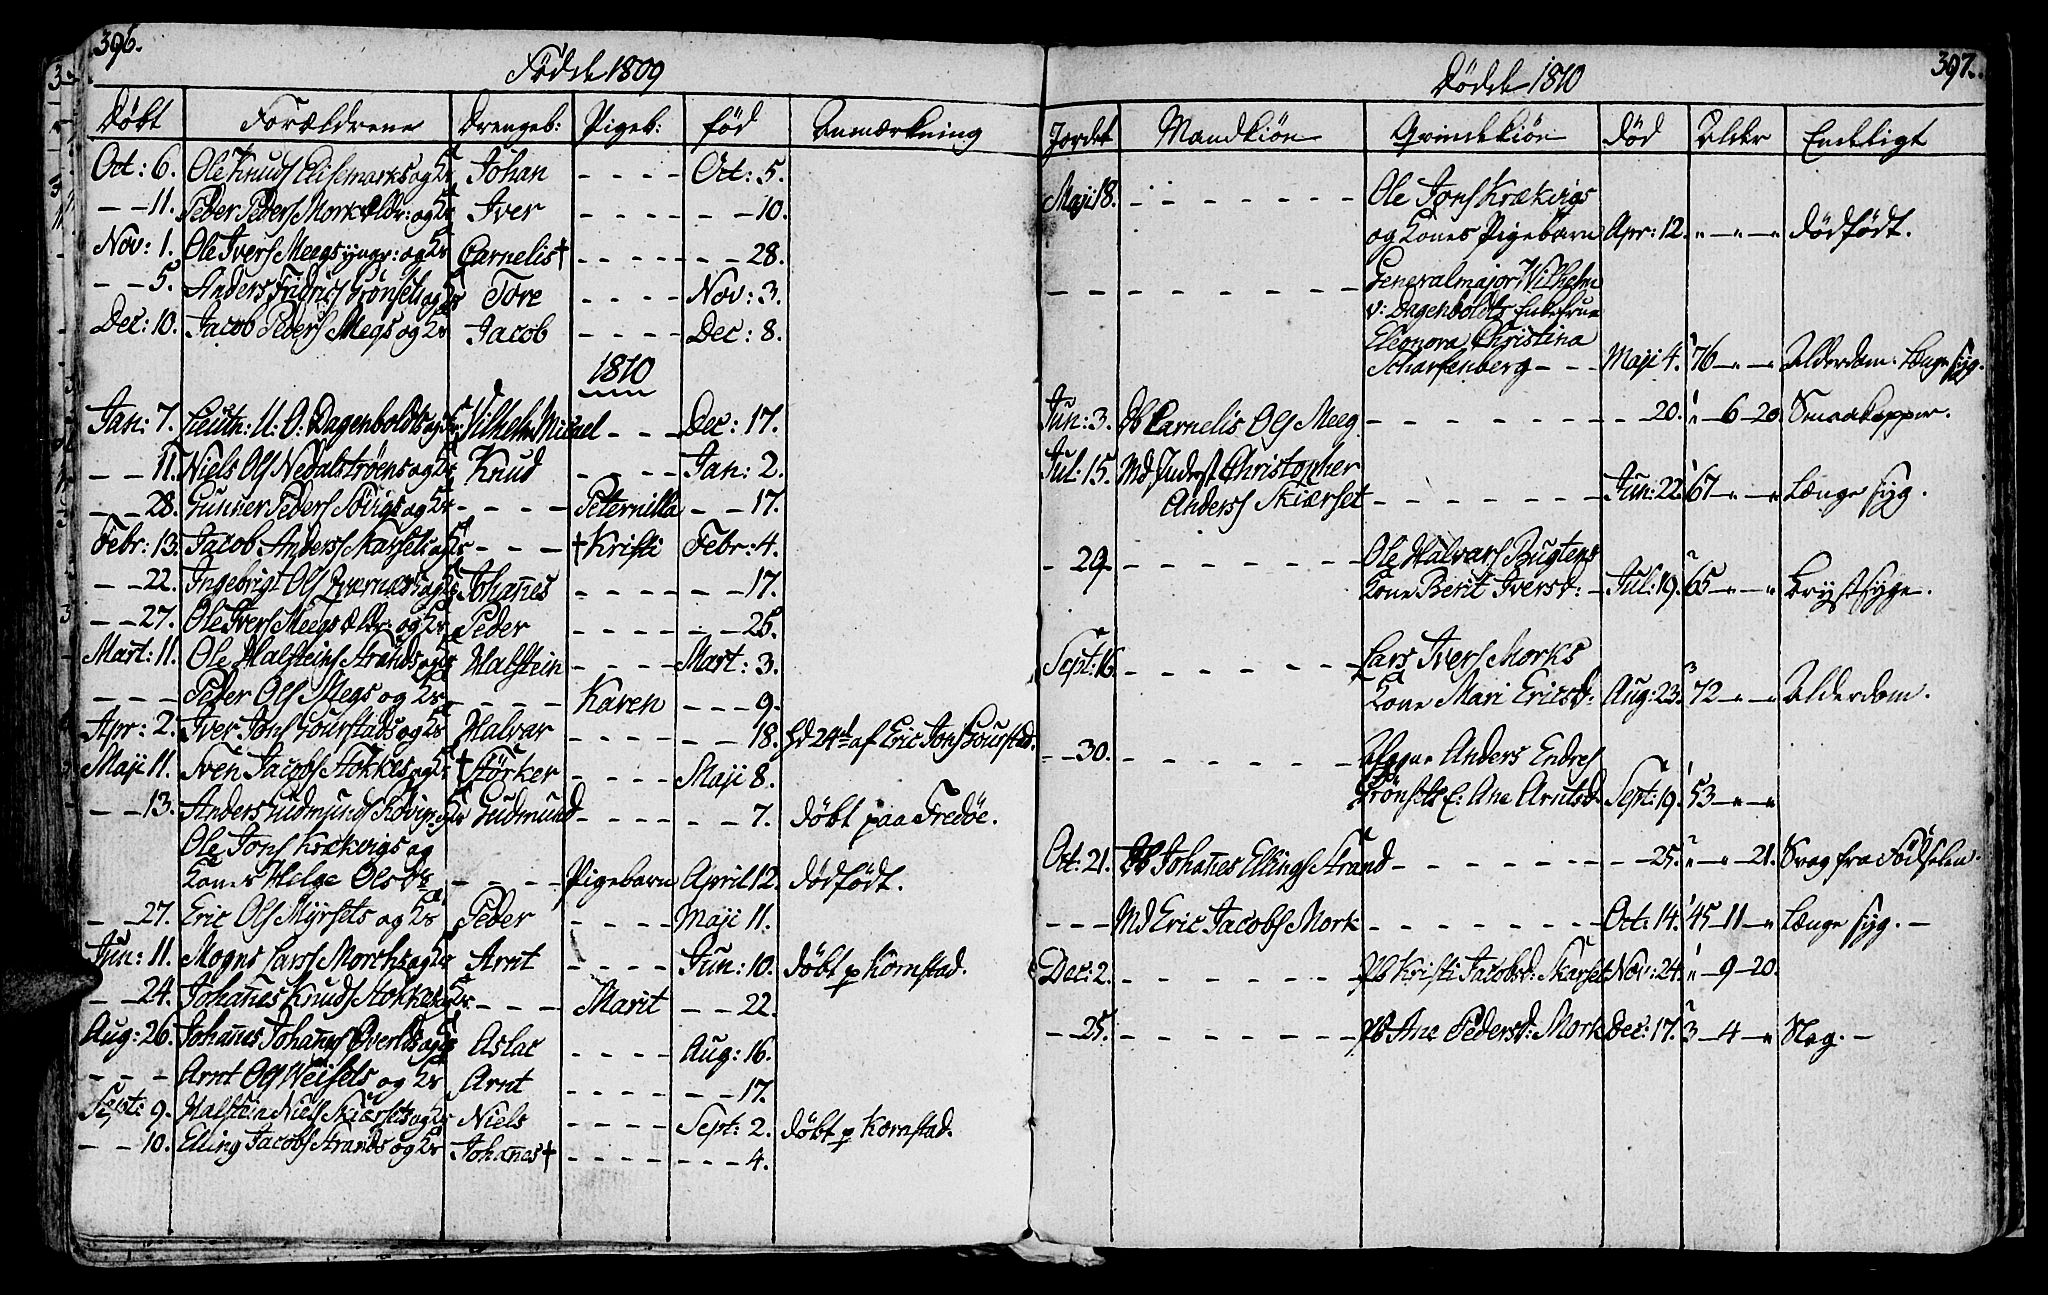 396.
Fødde 1809
Døbt Forældrene Drengeb: Pigeb: fød Anmærkning
Oct: 6. Ole Knuds Elisemarks og Hr Johan - - - - Oct: 5.
- - 11. Peder Peders Mork ældr: og Hr Iver - - - - - - 10.
Nov: 1. Ole Ivers Meegs yngr: og Hr Carnelis † - - - - - - 28.
- - 5. Anders Fridrics Grønsets og Hr Tore - - - - Nov: 3.
Dec: 10. Jacob Peders Megs og Hr Jacob - - - - Dec: 8.
1810
Jan: 7. Lieutn: U: O: Dagenboldts og Fr: Vilhelm Michel - - - Dec: 17.
- - 11. Niels Ols Nedalstrøens og Hr Knud - - - - Jan: 2.
- - 28. Gunner Peders og Hr - - - - Peternilla - - 17.
Febr: 13. Jacob Anders Karsets og Hr - - - † Kristi Febr: 4.
- - 22. Ingebrigt Ols Qvernæs og Hr Johañes - - - - - - 17.
- - 27. Ole Ivers Meegs ældr: og Hr Peder - - - - - - 25.
Mart: 11. Ole Halsteins Strands og Hr Halstein - - - - Mart: 3.
- - - Peder Ols Megs og Hr - - - - Karen - - - 9.
Apr: 2. Iver Jons Gourstads og Hr Halvar - - - - - - 18. Hd 24de af Eric Jons Gourstad.
Maji 11. Sven Jacobs Stokkes og Hr † Størker - - - - Maji 8.
- - 13. Anders Gudmunds og Hr Gudmund - - - - - - 7. døbt paa Fredöe.
Ole Jons Krækvigs og
Kones Helge Olsdr - - - - Pigebarn April 12. dødfødt.
- - 27. Eric Ols Myrsets og Hr Peder Maji 11.
Jun: 11. Mogns Lars Morchs og Hr Arnt - - - - Jun: 10. døbt p Kornstad.
- - 24. Johañes Knuds Stokkes og Hr - - - - Marit - - 22.
Aug: 26. Johañes Johañes Øverlds og Hr Aslac - - - - Aug: 16.
- - - Arnt Ols Weisets og Hr Arnt - - - - - - 17.
Sept: 9. Halstein Niels Skiærsets og Hr Niels - - - - Sept: 2. døbt p Kornstad.
- - 10. Elling Jacobs Strands og Hr Johañes † - - - - - - - 4.
397.
Dødde 1810
Jordet Mandkiön Qvindekiön død Alder Endeligt
Maji 18. - - - - - - Ole Jons Krækvigs
og Kones Pigebarn Apr: 12. " - " - " dødfødt.
- - - - - - - - Generalmajor Wilhelm
v: Dagenboldts Enkefrue
Eleonora Christina
Scharfenberg - - - Maji 4. 76 - " - " Alderdom. Længe syg.
Jun: 3. Db Carnelis Ols Meeg. - - - - - - - - 20. " - 6 - 20. Smaakopper.
Jul: 15. Md Inderst Christopher
Anders Skiærset - - - - - - Jun: 22. 67 - " - " Længe syg.
- 29. - - - - - - Ole Halvars Bugtens
Kone Berit Iversd: - Jul: 19. 65 - " - " Brystsyge.
Sept: 16. - - - - - - Lars Ivers Morks
Kone Mari Ericsd: Aug: 23. 72 - " - " Alderdom.
- - 30. - - - - - - Afgne Anders Endres
Grönsets E: Ane Arntsd: Sept: 19. 53 - " - "
Oct: 21. Db Johañes Ellings Strand - - - - - - - - 25. " - " - 21. Svag fra Födselen.
- - - Md Eric Jacobs Mork - - - - - - Oct: 14. 45 - 11 - " Længe syg. -
Dec: 2. - - - - - - Pb Kristi Jacobsd: Skarset Nov: 24. " - 9 - 20.
- - 25. - - - - - - Pb Ane Pedersd: Mork Dec: 17. 3 - 4 - " Slag. -